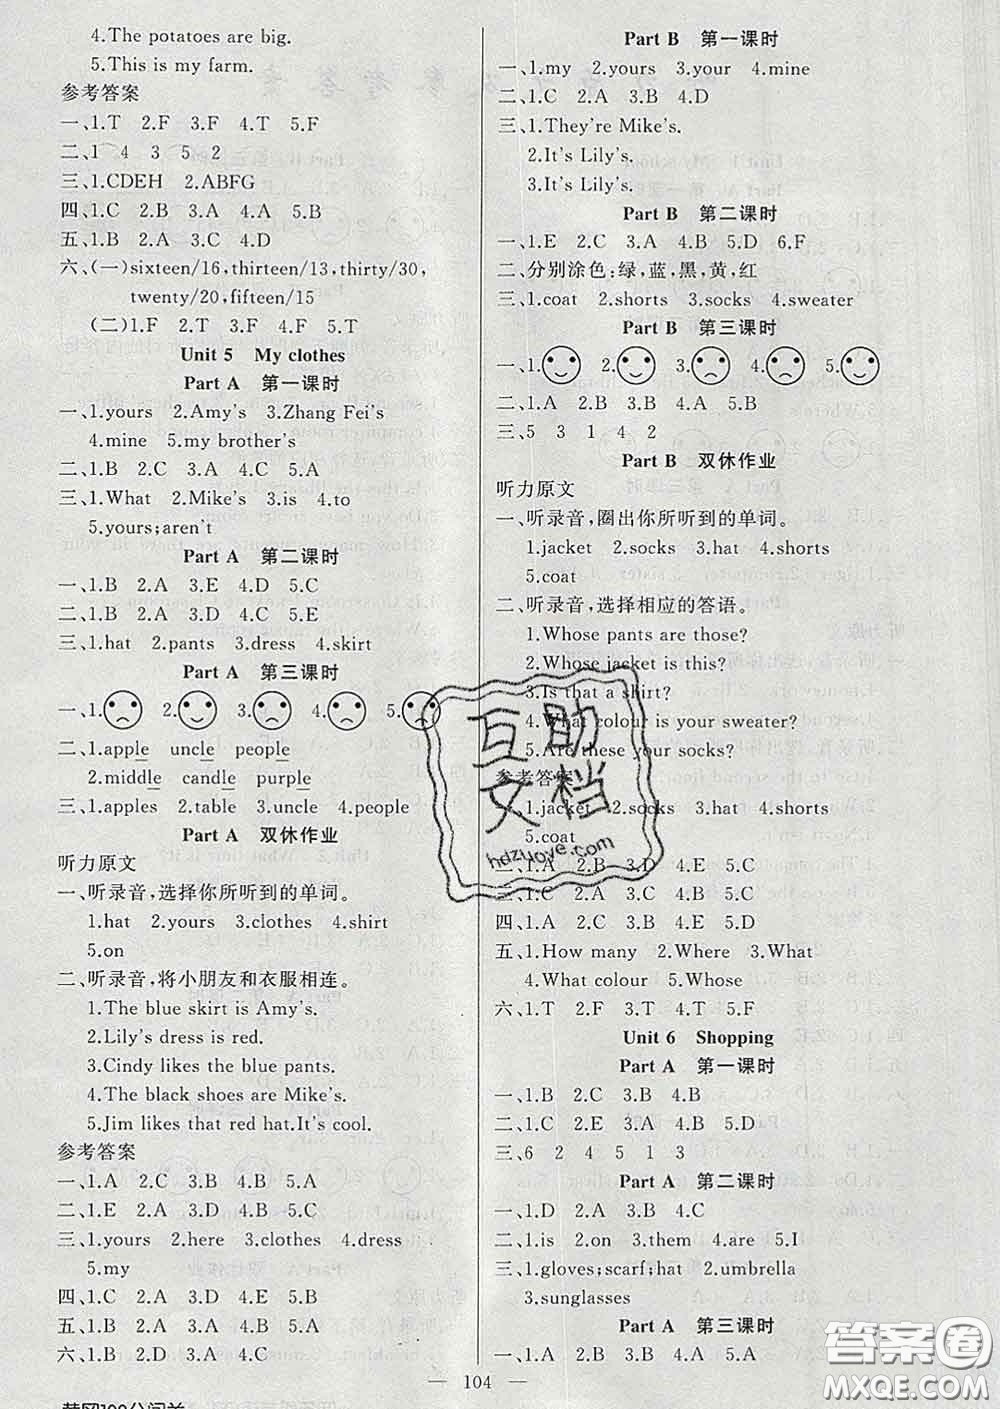 4.The potatoes are big.
5.This is my farm.
参考答案
一、1.T 2.F 3.F 4.T 5.F
二、1 4 3 5 2
三、1.CDEH 2.ABFG
四、1.C 2.B 3.A 4.A 5.B
五、1.B 2.A 3.C 4.D
六、(一)sixteen/16,thirteen/13,thirty/30,
twenty/20,fifteen/15
(二)1.F 2.T 3.F 4.F 5.T
Unit 5 My clothes
Part A 第一课时
一、1.yours 2.Amy's 3.Zhang Fei's
4.mine 5.my brother's
二、1.B 2.C 3.A 4.C 5.A
三、1.What 2.Mike's 3.is 4.to
5.yours;aren't
Part A 第二课时
一、1.B 2.A 3.E 4.D 5.C
二、1.B 2.A 3.D 4.C 5.E
三、1.hat 2.pants 3.dress 4.skirt
Part A 第三课时
一、1. 2. 3. 4. 5.
二、1.apple uncle people
2.middle candle purple
三、1.apples 2.table 3.uncle 4.people
Part A 双休作业
听力原文
一、听录音,选择你所听到的单词。
1.hat 2.yours 3.clothes 4.shirt
5.on
二、听录音,将小朋友和衣服相连。
1.The blue skirt is Amy's.
2.Lily's dress is red.
3.Cindy likes the blue pants.
4.The black shoes are Mike's.
5.Jim likes that red hat.It's cool.
参考答案
一、1.A 2.C 3.B 4.B 5.A
二、1.E 2.A 3.D 4.B 5.C
三、1.yours 2.here 3.clothes 4.dress
5.my
四、1.C 2.A 3.D 4.E 5.B
五、1.B 2.A 3.A 4.B 5.A
六、1.B 2.A 3.B 4.C 5.C
Part B 第一课时
一、1.my 2.yours 3.your 4.mine
二、1.C 2.A 3.B 4.D
三、1.They're Mike's.
2.It's Lily's.
3.It's Lily's.
Part B 第二课时
一、1.E 2.C 3.A 4.B 5.D 6.F
二、分别涂色:绿,蓝,黑,黄,红
三、1.coat 2.shorts 3.socks 4.sweater
Part B 第三课时
一、1. 2. 3. 4. 5.
二、1.A 2.B 3.A 4.A 5.B
三、5 3 1 4 2
Part B 双休作业
听力原文
一、听录音,圈出你所听到的单词。
1.jacket 2.socks 3.hat 4.shorts
5.coat
二、听录音,选择相应的答语。
1.Whose pants are those?
2.Whose jacket is this?
3.Is that a skirt?
4.What colour is your sweater?
5.Are these your socks?
参考答案
一、1.jacket 2.socks 3.hat 4.shorts
5.coat
二、1.A 2.B 3.D 4.E 5.C
三、1.C 2.A 3.B 4.A 5.C
四、1.A 2.C 3.B 4.E 5.D
五、1.How many 2.Where 3.What
4.What colour 5.Whose
六、1.T 2.F 3.T 4.T 5.F
Unit 6 Shopping
Part A 第一课时
一、1.B 2.C 3.B 4.B
二、1.C 2.E 3.A 4.B 5.D
三、6 2 4 5 1 3
Part A 第二课时
一、1.D 2.A 3.B 4.C
二、1.is 2.on 3.them 4.are 5.I
三、1.gloves;scarf;hat 2.umbrella
3.sunglasses
Part A 第三课时
一、1.A 2.B 3.B 4.A 5.B
— 104 —
互助文档
hdzuoye.com
答案圈
MXQE.COM